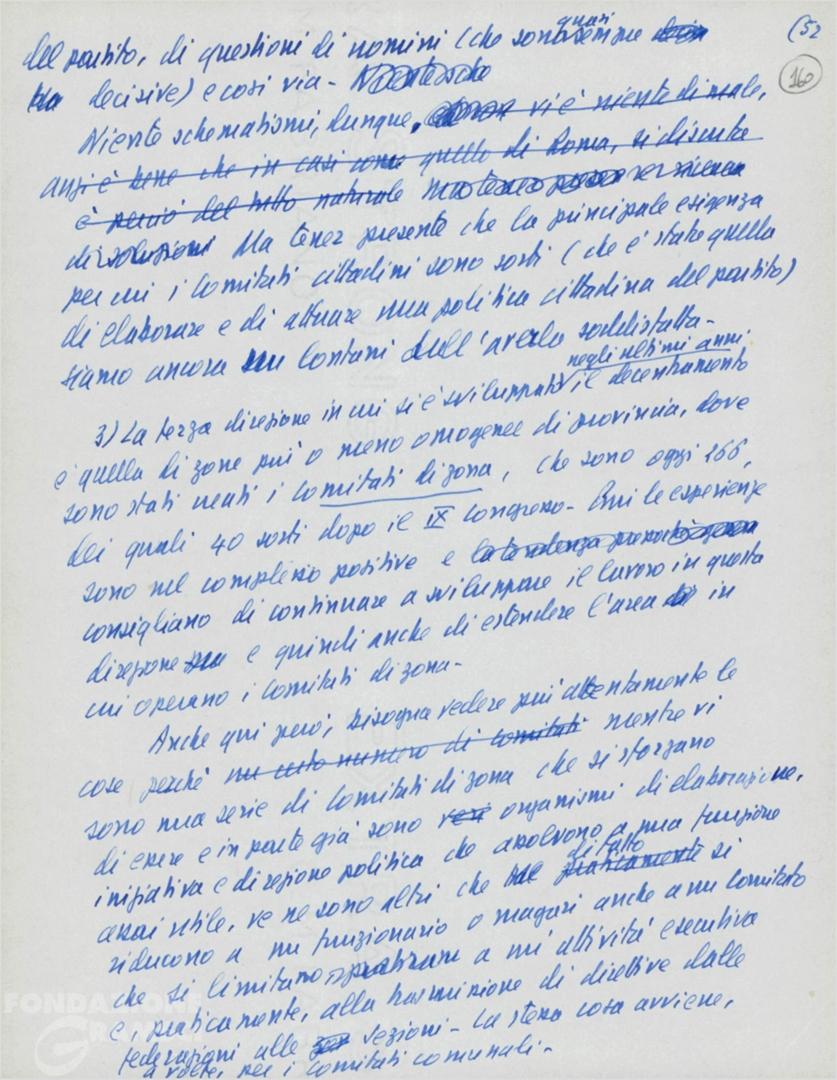 (52
160
del partito, di questioni di uomini (che sono quasi sempre
decisive) e così via -
Niente schematismi, dunque, vi è niente di male,
anzi è bene che in casi come quello di Roma, si discuta
è perciò del tutto naturale
di soluzioni Ma tener presente che la principale esigenza
per cui i Comitati cittadini sono sorti (che è stata quella
di elaborare e di attuare una politica cittadina del partito)
siamo ancora lontani dall'averla soddisfatta -
3) La terza direzione in cui si è sviluppato negli ultimi anni il decentramento
è quella di zone più o meno omogenee di provincia, dove
sono stati creati i comitati di zona, che sono oggi 166,
dei quali 40 sorti dopo il IX congresso - Qui le esperienze
sono nel complesso positive e
consigliano di continuare a sviluppare il lavoro in questa
direzione e quindi anche di estendere l'area in
cui operano i Comitati di zona -
Anche qui però, bisogna vedere più attentamente le
cose perché un certo numero di comitati mentre vi
sono una serie di Comitati di zona che si sforzano
di essere e in parte già sono veri organismi di elaborazione,
iniziativa e direzione politica che assolvono a una funzione
assai utile, ve ne sono altri che di fatto praticamente si
riducono a un funzionario o magari anche a un Comitato
che si limitano a un'attività esecutiva
e, praticamente, alla trasmissione di direttive dalle
federazioni alle sezioni - La stessa cosa avviene,
a volte, per i Comitati comunali -
FONDAZIONE
GRAMSCI